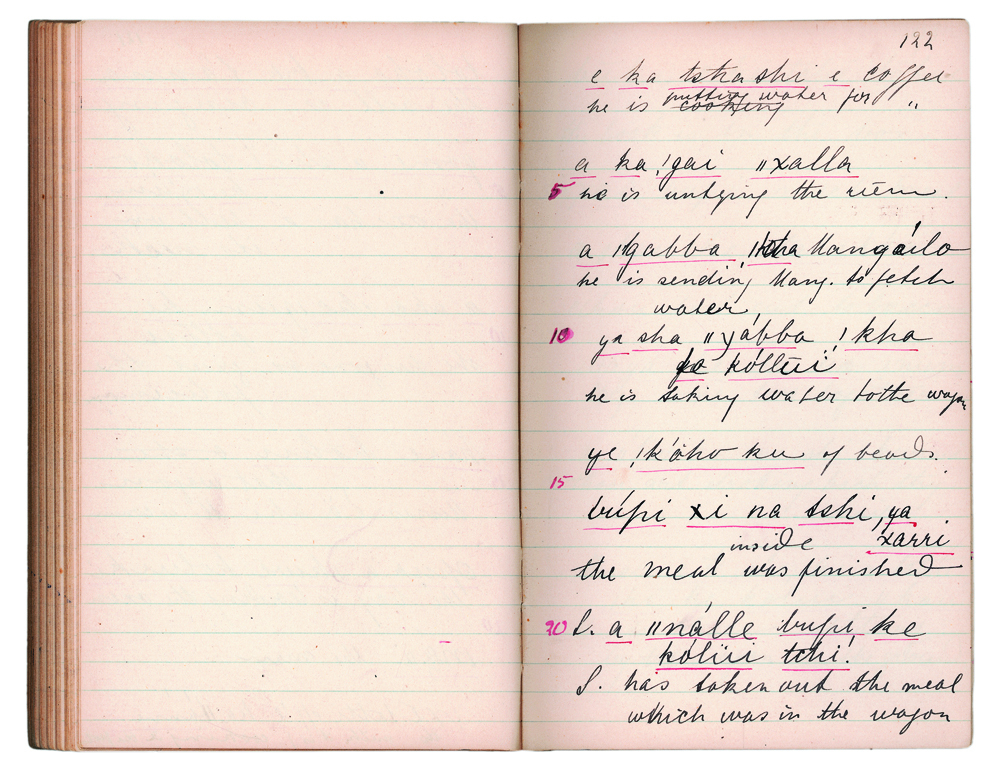 122
e ka tsha shi e coffee
he is putting water for "
cooking
a ka !gai ǁxalla
5 he is untying the riem.
a ǁgabba, ǁkha Mangailo
he is sending Mang. to fetch
water,
10 ya sha ǁyábba !kha
ka kóllüi
he is taking water to the wagon
ye !káho ku of beads.
15
búpi xi na tshi, ya
inside xarri
the meal was finished
20 S. a ǁnálle bupi ke
kólüi tchi.
S. has taken out the meal
which was in the wagon